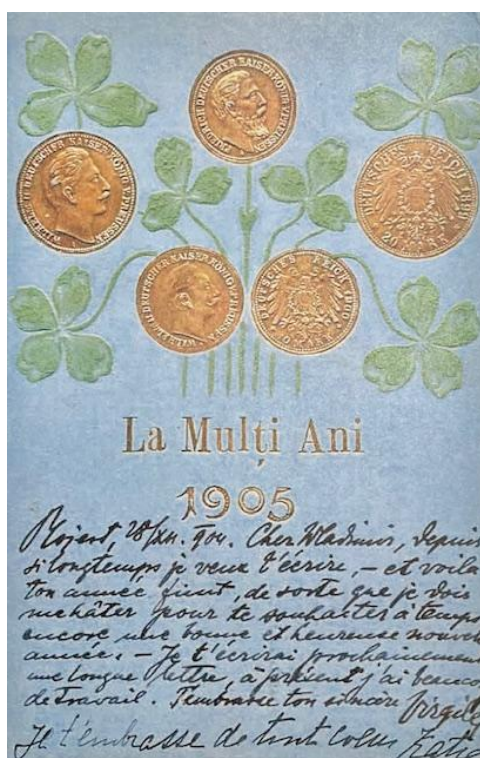 FRIEDRICH DEUTSCHER KAISER KÖNIG V. PREUSSEN
WILHELM II DEUTSCHER KAISER KÖNIG V. PREUSSEN
DEUTSCHES REICH
20 MARK
WILHELM II DEUTSCHER KAISER KÖNIG V. PREUSSEN
DEUTSCHES REICH 1900
MARK
La Mulți Ani
1905
28/XII. 904. Cher Wladimir, Depuis
si longtemps je veux t'écrire, – et voilà
ton année finit, de sorte que je dois
me hâter pour te souhaiter à temps
encore une bonne et heureuse nouvel
année. – Je t'écrirai prochainement
une longue lettre, à présent j'ai beauco
de travail. T'embrasse ton sincère Virgile
Je t'embrasse de tout coeur